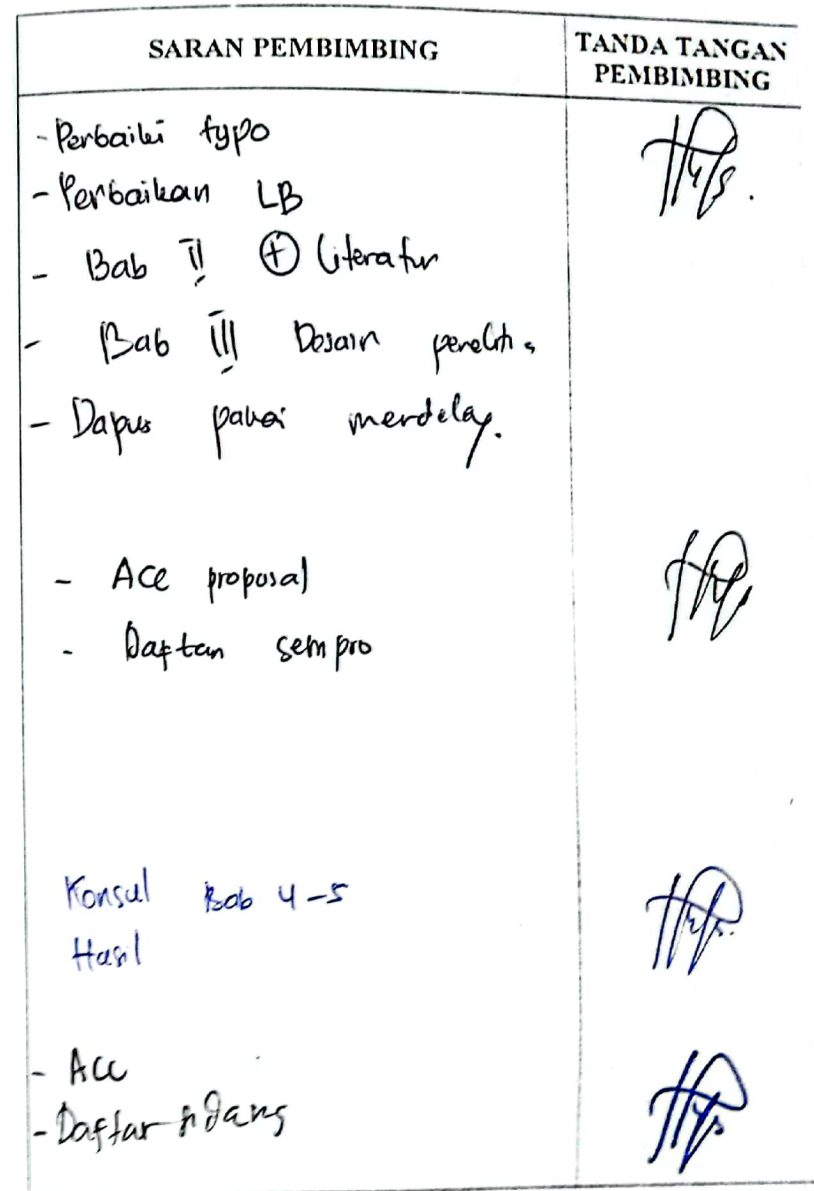 SARAN PEMBIMBING
TANDA TANGAN
PEMBIMBING
- Perbaiki typo
- Perbaikan LB
- Bab II + Literatur
- Bab III Desain
- Dapus pakai
- Acc proposal
- Daftar sempro
Konsul Bab 4-5
Hasil
- Acc
- Daftar sidang